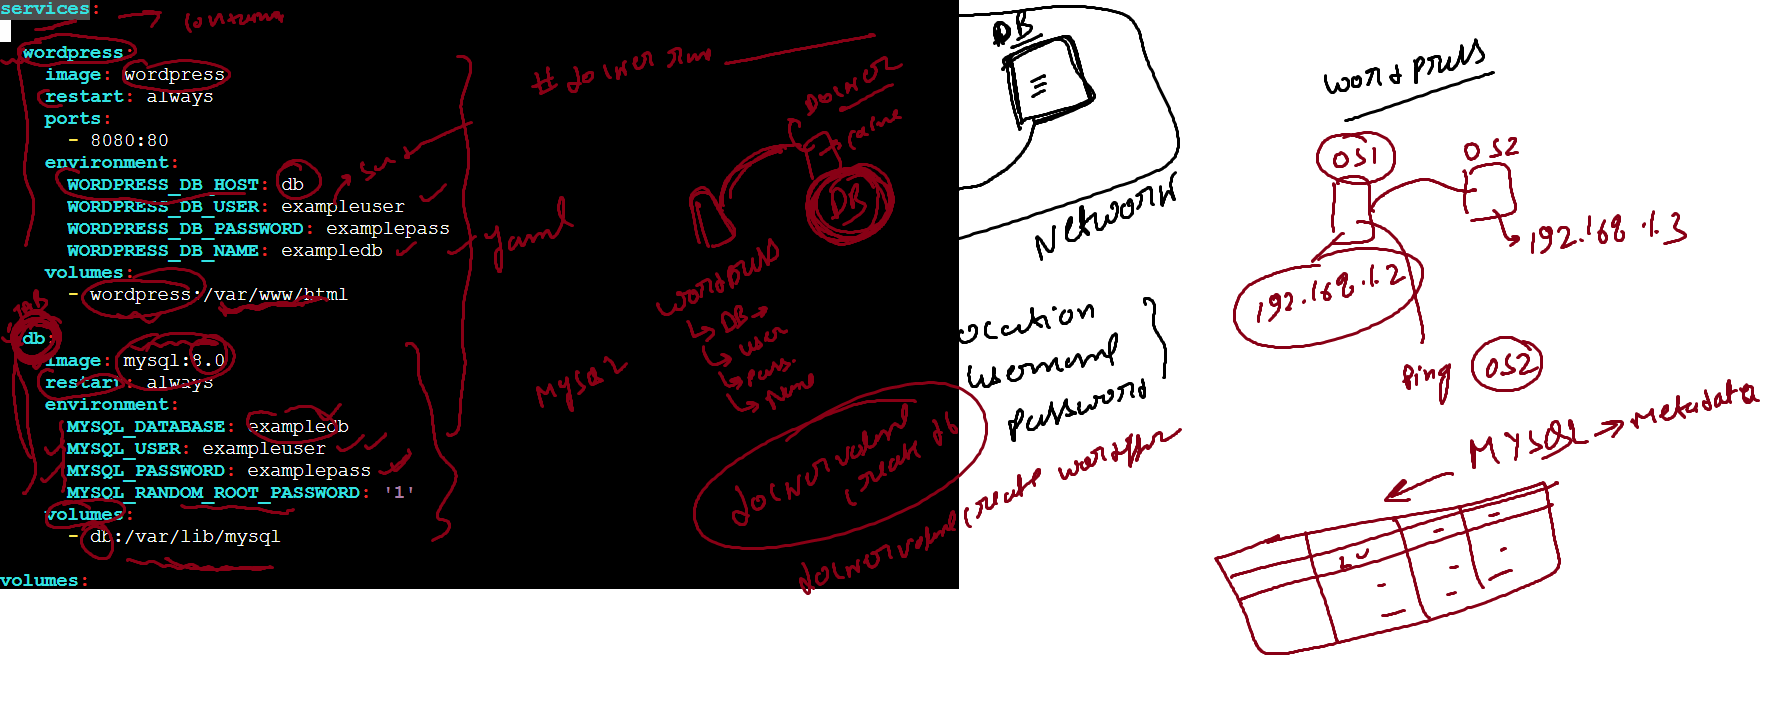 services:
wordpress:
image: wordpress
restart: always
ports:
- 8080:80
environment:
WORDPRESS_DB_HOST: db
WORDPRESS_DB_USER: exampleuser
WORDPRESS_DB_PASSWORD: examplepass
WORDPRESS_DB_NAME: exampledb
volumes:
- wordpress:/var/www/html
TAB
db:
image: mysql:8.0
restart: always
environment:
MYSQL_DATABASE: exampledb
MYSQL_USER: exampleuser
MYSQL_PASSWORD: examplepass
MYSQL_RANDOM_ROOT_PASSWORD: '1'
volumes:
- db:/var/lib/mysql
volumes:
yaml
# docker run
DOCKER
DB
wordpress
DB →
user
pass.
Name
MYSQL
docker volume
create db
docker volume create wordpress
DB
Network
ocation
username
password
wordpress
OS1
OS2
192.168.1.3
192.168.1.2
Ping OS2
MYSQL → Metadata